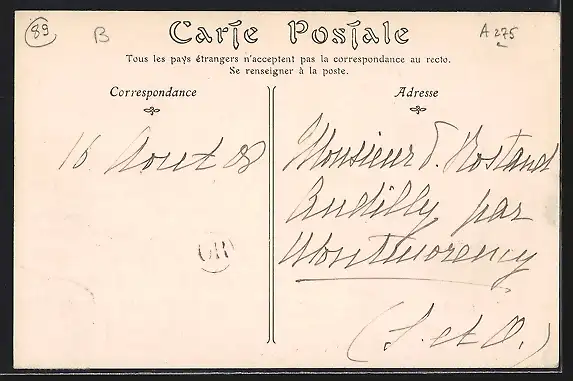 89
B
Carte Postale
A 275
Tous les pays étrangers n'acceptent pas la correspondance au recto.
Se renseigner à la poste.
Correspondance
Adresse
16 Aout 08
Monsieur J. Rostand
Andilly par
Montmorency
(S. et O.)
OR